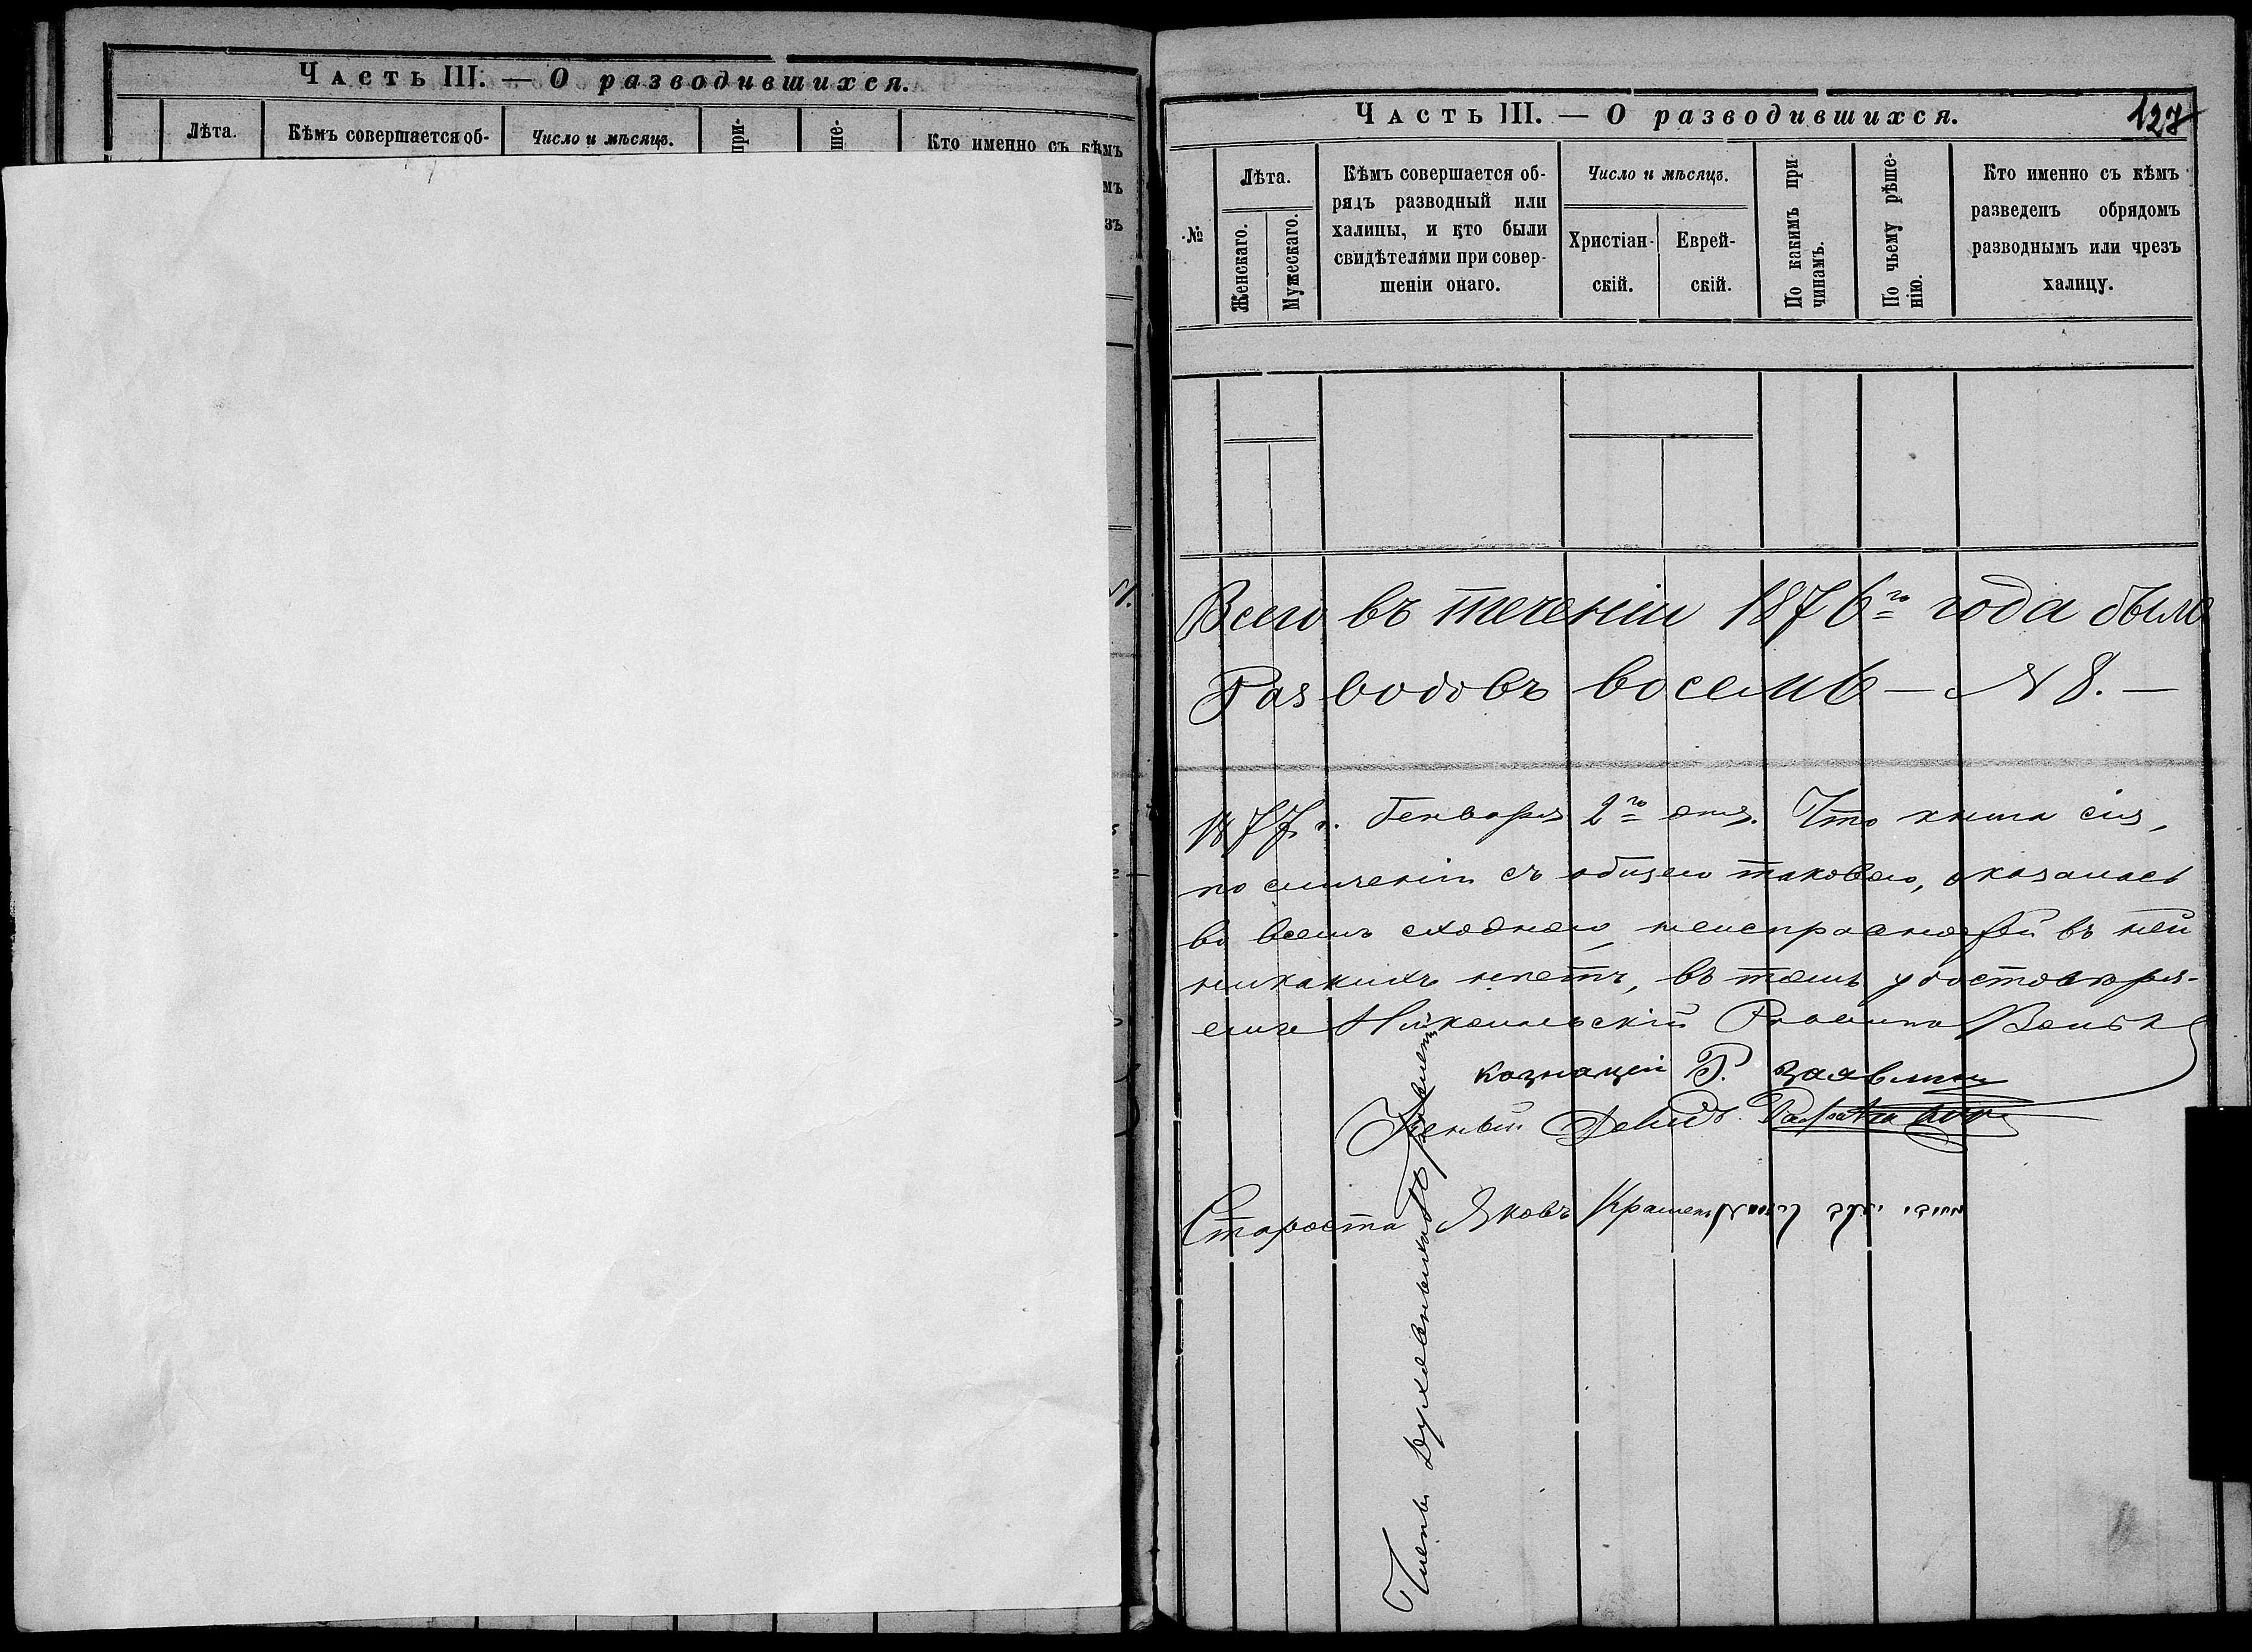 Часть III. — О разводившихся.
Лѣта.
Кѣмъ совершается об-
Число и мѣсяцъ.
при-
ше-
Кто именно съ кѣмъ
мъ
зъ
Часть III. — О разводившихся.
127
№
Лѣта.
Женскаго.
Мужескаго.
Кѣмъ совершается об-
рядъ разводный или
халицы, и кто были
свидѣтелями при совер-
шеніи онаго.
Число и мѣсяцъ.
Христіан-
скій.
Еврей-
скій.
По какимъ при-
чинамъ.
По чьему рѣше-
нію.
Кто именно съ кѣмъ
разведенъ обрядомъ
разводнымъ или чрезъ
халицу.
Всего въ теченіи 1876го года было
Разводовъ восемь — N 8. —
1877 г. Генваря 2го дня. Что книга сія,
по сличеніи съ общею таковою, оказалась
во всемъ сходною, неисправностей въ ней
никакихъ нѣтъ, въ томъ удостовѣря-
емъ
Казначей
Староста Яковъ
Членъ